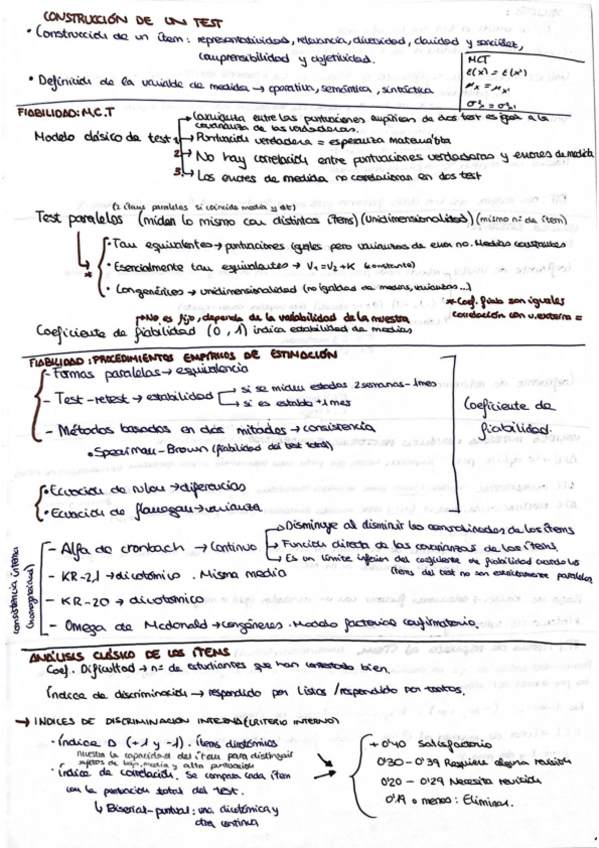 CONSTRUCCIÓN DE UN TEST
• Construcción de un ítem: representatividad, relevancia, diversidad, claridad y sencillez,
comprensibilidad y objetividad.
MCT
σ²x₁ = σ²x₁'
• Definición de la variable de medida → operativa, semántica, sintáctica
FIABILIDAD: M.C.T
Modelo clásico de test
covarianza entre las puntuaciones empíricas de dos test es igual a la
covarianza de las verdaderas.
1→ Puntuación verdadera = esperanza matemática
2→ No hay correlación entre puntuaciones verdaderas y errores de medida
3→ Los errores de medida no correlacionan en dos test
(2 ítems paralelos si coincide media y dt)
Test paralelos (miden lo mismo con distintos ítems) (unidimensionalidad) (mismo nº de ítem)
• Tau equivalentes → puntuaciones iguales pero varianzas de error no. Medias constantes
• Esencialmente tau equivalentes → V₁=V₂+K (constante)
• Congenéricos → unidimensionalidad (no igualdad de medias, varianzas...)
→ No es fijo, depende de la variabilidad de la muestra
* Coef. fiab son iguales
correlación con v. externa =
Coeficiente de fiabilidad (0,1) indica estabilidad de medidas
FIABILIDAD: PROCEDIMIENTOS EMPÍRICOS DE ESTIMACIÓN
- Formas paralelas → equivalencia
- Test-retest → estabilidad
si se miden estados 2 semanas-1 mes
si es estable +1 mes
- Métodos basados en dos mitades → consistencia
• Spearman-Brown (fiabilidad del test total)
Coeficiente de
fiabilidad.
• Ecuación de rulon → diferencias
• Ecuación de flanagan → varianza
consistencia interna
- Alfa de cronbach → Continuo
→ Disminuye al disminuir las comunalidades de los ítems
→ Función directa de las covarianzas de los ítems.
→ Es un límite inferior del coeficiente de fiabilidad cuando los
ítems del test no son estrictamente paralelos
- KR-21 → dicotómico. Misma media
- KR-20 → dicotómico
- Omega de Mcdonald → congéneres. Modelo factorial confirmatorio.
ANÁLISIS CLÁSICO DE LOS ÍTEMS
Coef. Dificultad → nº de estudiantes que han contestado bien.
Índice de discriminación → respondido por listos / respondido por tontos.
→ INDICES DE DISCRIMINACION INTERNA (CRITERIO INTERNO)
• Índice D (+1 y -1). Ítems dicotómicos
muestra la capacidad del ítem para distinguir
sujetos de baja, media y alta puntuación
• Índice de correlación. Se compara cada ítem
con la puntuación total del test.
↳ Biserial-puntual: una dicotómica y
otra continua
+ 0'40 Satisfactorio
0'30 - 0'39 Requiere alguna revisión
0'20 - 0'29 Necesita revisión
0'19 o menos: Eliminar.